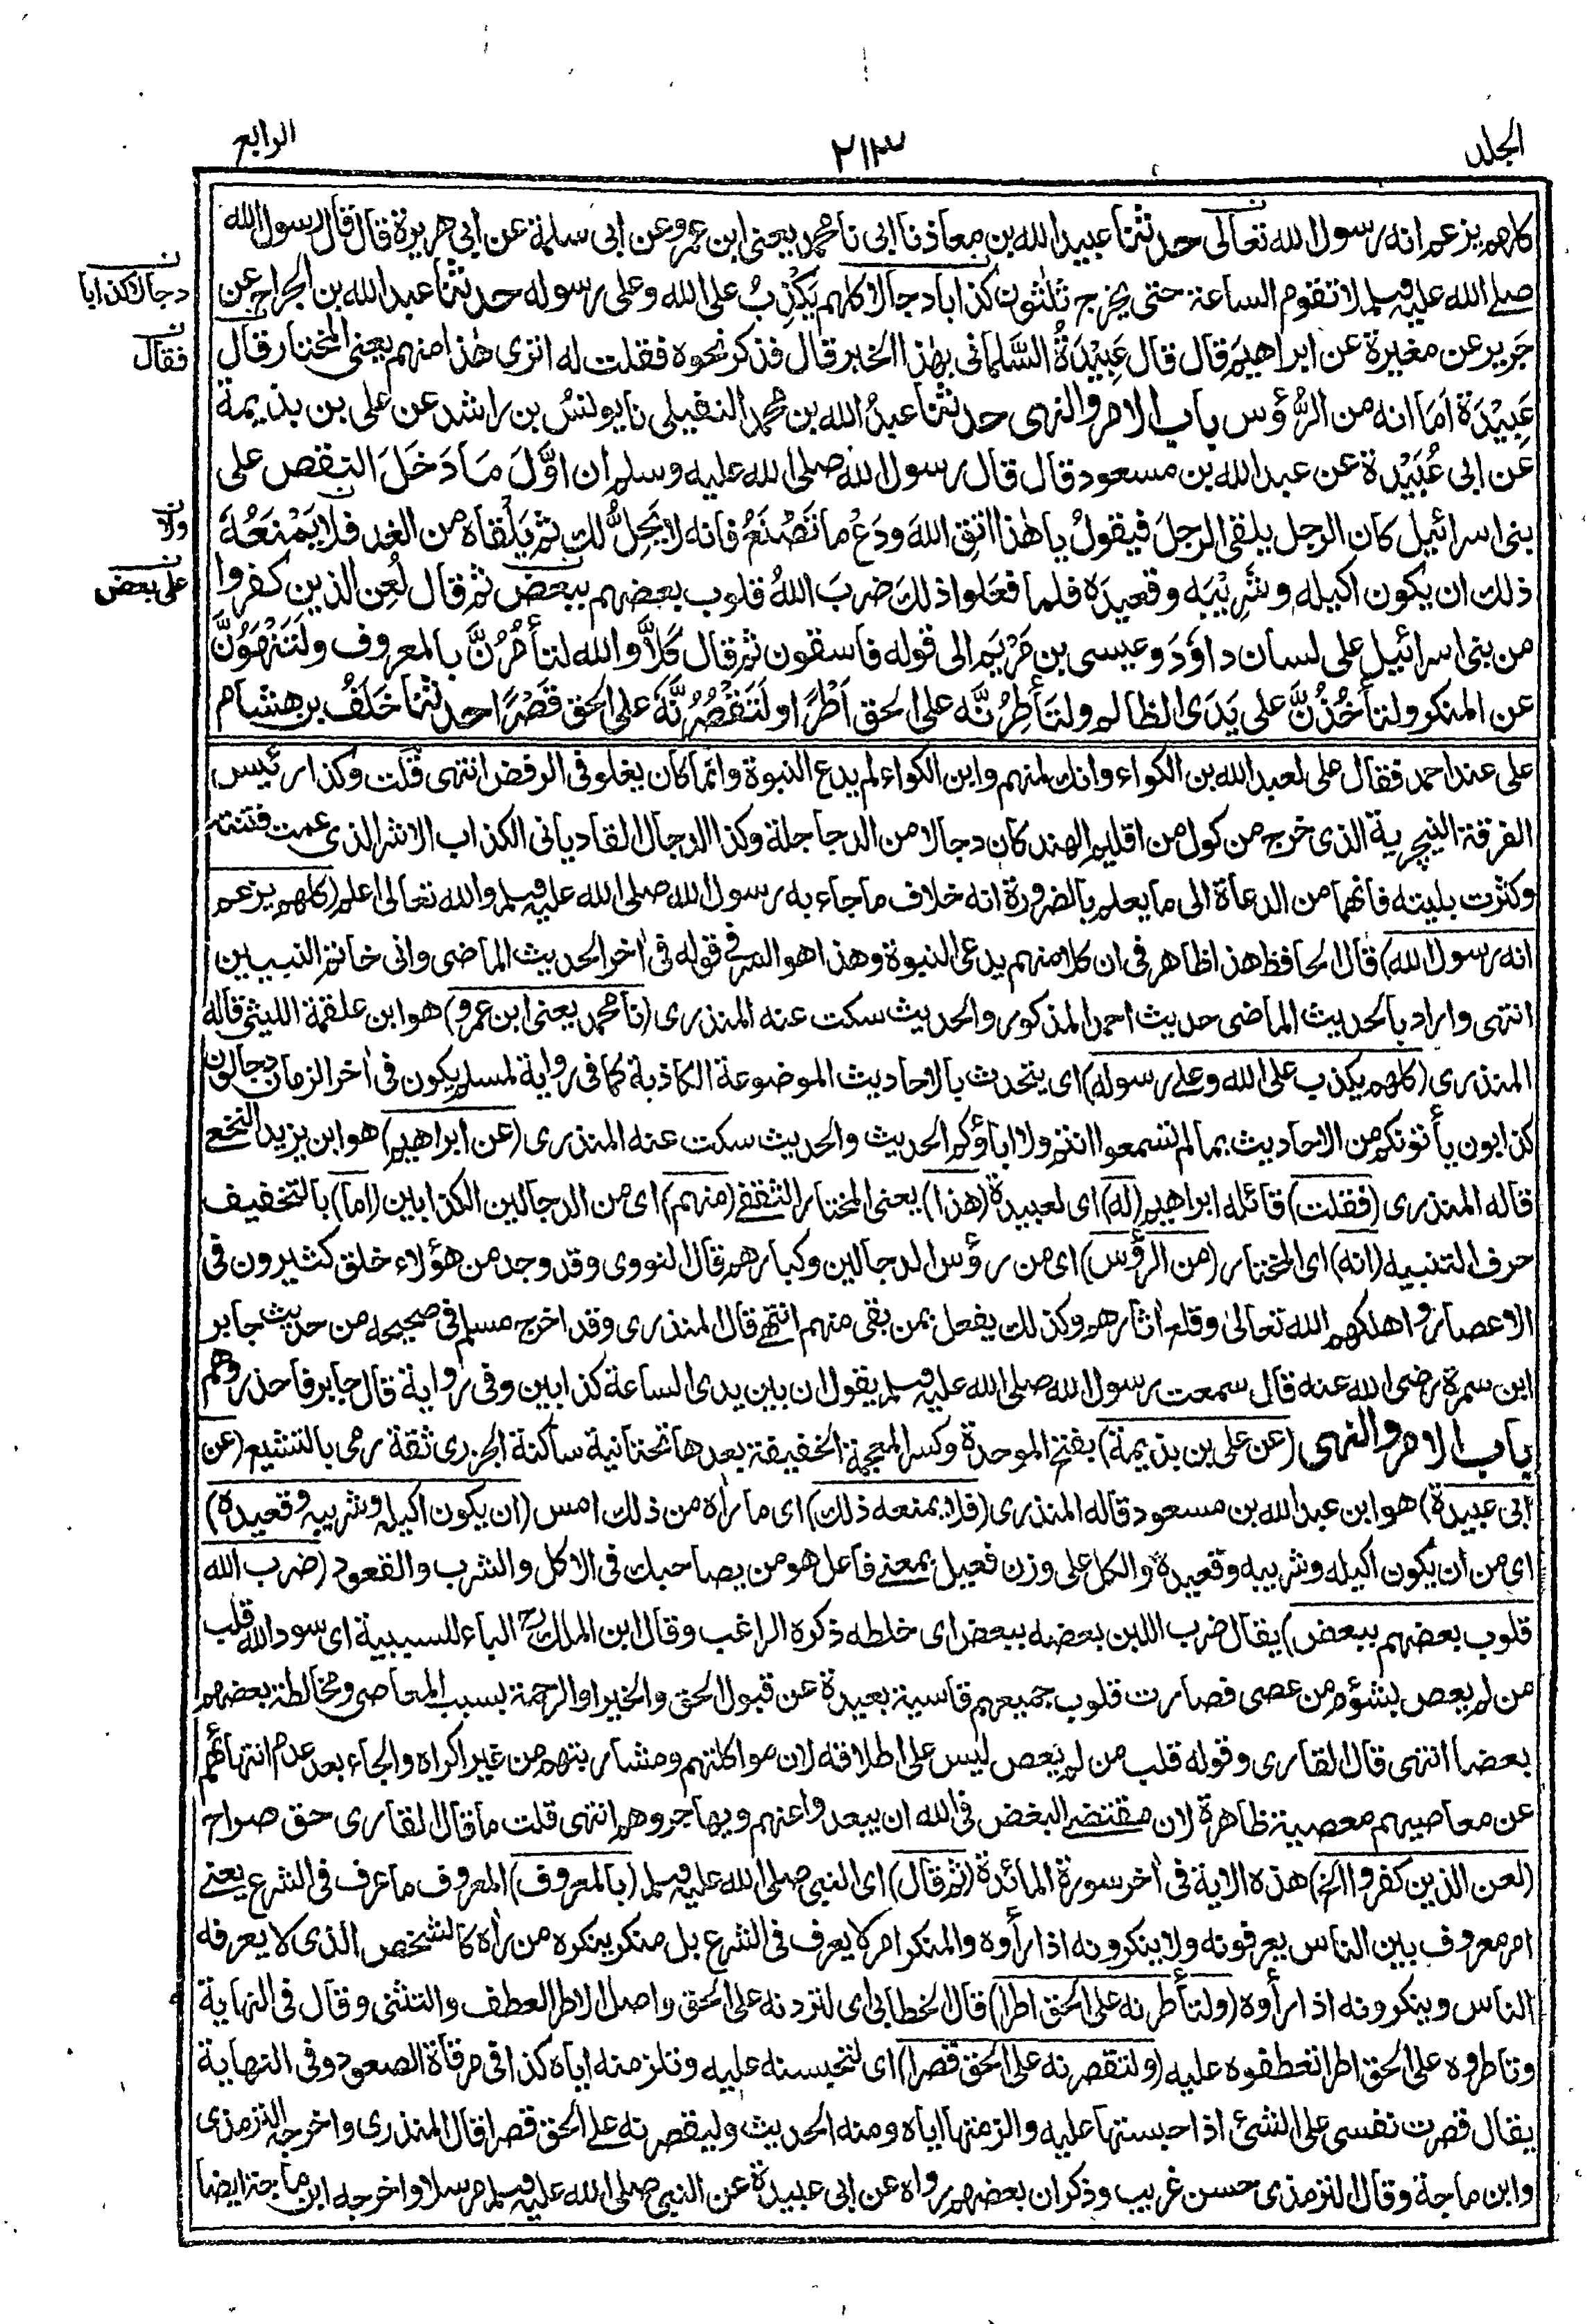 الجلد
٢١٣
الرابع
كلهم يزعم انه رسول الله تعالى حدثنا عبيد الله بن معاذ نا ابى نا محمد يعنى ابن عمرو عن ابى سلمة عن ابى هريرة قال قال رسول الله
صلى الله عليه وسلم لا تقوم الساعة حتى يخرج ثلثون كذابا دجالا كلهم يَكْذِبُ على الله وعلى رسوله حدثنا عبد الله بن الجراح عن
دجالا كذابا
جَرير عن مغيرة عن ابراهيم قال قال عَبِيْدَةُ السَّلمانى بهذا الخبر قال فذكر نحوه فقلت له اترى هذا منهم يعنى المختار قال
فقال
عَبِيْدَة اَمَا انه من الرُّؤس باب الامر والنهى حدثنا عبدُ الله بن محمد النفيلى نا يونسُ بن راشد عن على بن بذيمة
عن ابى عُبَيْدة عن عبد الله بن مسعود قال قال رسول الله صلى الله عليه وسلم ان اوَّلَ مَا دَخَلَ النقص على
بنى اسرائيل كان الرجل يلقى الرجلَ فيقولُ يا هٰذا اتق اللهَ ودَعْ ما تَصْنَعُ فانه لا يَحِلُّ لك ثم يَلْقاه من الغد فلا يَمْنَعُهُ
ولا
ذلك ان يكون اكيله وشَرِيْبَه وقعيدَه فلما فعَلوا ذلك ضربَ اللهُ قلوب بعضهم ببعض ثم قال لُعِن الذين كفروا
على بعض
من بنى اسرائيل على لسان داوٗدَ وعيسى بن مَرْيَم الى قوله فاسقون ثم قال كَلَّا والله لتأمُرُنَّ بالمعروف ولَتَنْهَوُنَّ
عن المنكر ولتأخُذُنَّ على يَدَى الظالم ولتأطِرُنَّه على الحق اَطْرًا او لَتَقْصُرُنَّه على الحق قَصْرًا حدثنا خَلَفُ بن هشام
على عند احمد فقال على لعبد الله بن الكواء وانك لمنهم وابن الكواء لم يدع النبوة وانما كان يغلو فى الرفض انتهى قلت وكذا رئيس
الفرقة النيچرية الذى خرج من كول من اقليم الهند كان دجالا من الدجاجلة وكذا الدجال القاديانى الكذاب الاشر الذى عمت فتنته
وكثرت بليته فانهما من الدعاة الى ما يعلم بالضرورة انه خلاف ما جاء به رسول الله صلى الله عليه وسلم والله تعالى اعلم (كلهم يزعم
انه رسول الله) قال الحافظ هذا ظاهر فى ان كلا منهم يدعى النبوة وهذا هو السر فى قوله فى اٰخر الحديث الماضى وانى خاتم النبيين
انتهى واراد بالحديث الماضى حديث احمد المذكور والحديث سكت عنه المنذرى (نا محمد يعنى ابن عمرو) هو ابن علقمة الليثى قاله
المنذرى (كلهم يكذب على الله وعلى رسوله) اى يتحدث بالاحاديث الموضوعة الكاذبة كما فى رواية لمسلم يكون فى اٰخر الزمان دجالون
كذابون يأتونكم من الاحاديث بما لم تسمعوا انتم ولا اٰباؤكم الحديث والحديث سكت عنه المنذرى (عن ابراهيم) هو ابن يزيد النخعى
قاله المنذرى (فقلت) قائله ابراهيم (له) اى لعبيدة (هذا) يعنى المختار الثقفى (منهم) اى من الدجالين الكذابين (اما) بالتخفيف
حرف التنبيه (انه) اى المختار (من الرؤس) اى من رؤس الدجالين وكبارهم قال النووى وقد وجد من هؤلاء خلق كثيرون فى
الاعصار واهلكهم الله تعالى وقلع اٰثارهم وكذلك يفعل بمن بقى منهم انتهى قال المنذرى وقد اخرج مسلم فى صحيحه من حديث جابر
ابن سمرة رضى الله عنه قال سمعت رسول الله صلى الله عليه وسلم يقول ان بين يدى الساعة كذابين وفى رواية قال جابر فاحذروهم
باب الامر والنهى (عن على بن بذيمة) بفتح الموحدة وكسر المعجمة الخفيفة بعدها تحتانية ساكنة الجزرى ثقة رمى بالتشيع (عن
ابى عبيدة) هو ابن عبد الله بن مسعود قاله المنذرى (فلا يمنعه ذلك) اى ما راٰه من ذلك امس (ان يكون اكيله وشريبه وقعيده)
اى من ان يكون اكيله وشريبه وقعيده والكل على وزن فعيل بمعنى فاعل هو من يصاحبك فى الاكل والشرب والقعود (ضرب الله
قلوب بعضهم ببعض) يقال ضرب اللبن بعضه ببعض اى خلطه ذكره الراغب وقال ابن الملك رح الباء للسببية اى سود الله قلب
من لم يعص بشؤم من عصى فصارت قلوب جميعهم قاسية بعيدة عن قبول الحق والخير او الرحمة بسبب المعاصى ومخالطة بعضهم
بعضا انتهى قال القارى وقوله قلب من لم يعص ليس على اطلاقه لان مواكلتهم ومشاربتهم من غير اكراه والجاء بعد عدم انتهائهم
عن معاصيهم معصية ظاهرة لان مقتضى البغض فى الله ان يبعدوا عنهم ويهاجروهم انتهى قلت ما قال القارى حق صراح
(لعن الذين كفروا الخ) هذه الاية فى اٰخر سورة المائدة (ثم قال) اى النبى صلى الله عليه وسلم (بالمعروف) المعروف ما عرف فى الشرع يعنى
امر معروف بين الناس يعرفونه ولا ينكرونه اذا رأوه والمنكر امر لا يعرف فى الشرع بل منكر ينكره من راٰه كالشخص الذى لا يعرفه
الناس وينكرونه اذا رأوه (ولتأطرنه على الحق اطرا) قال الخطابى اى لتردنه على الحق واصل الاطر العطف والتثنى وقال فى النهاية
وتاطروه على الحق اطرا تعطفوه عليه (ولتقصرنه على الحق قصرا) اى لتحبسنه عليه وتلزمنه اياه كذا فى مرقاة الصعود وفى النهاية
يقال قصرت نفسى على الشئ اذا حبستها عليه والزمتها اياه ومنه الحديث وليقصرنه على الحق قصرا قال المنذرى واخرجه الترمذى
وابن ماجة وقال الترمذى حسن غريب وذكر ان بعضهم رواه عن ابى عبيدة عن النبى صلى الله عليه وسلم مرسلا واخرجه ابن ماجة ايضا